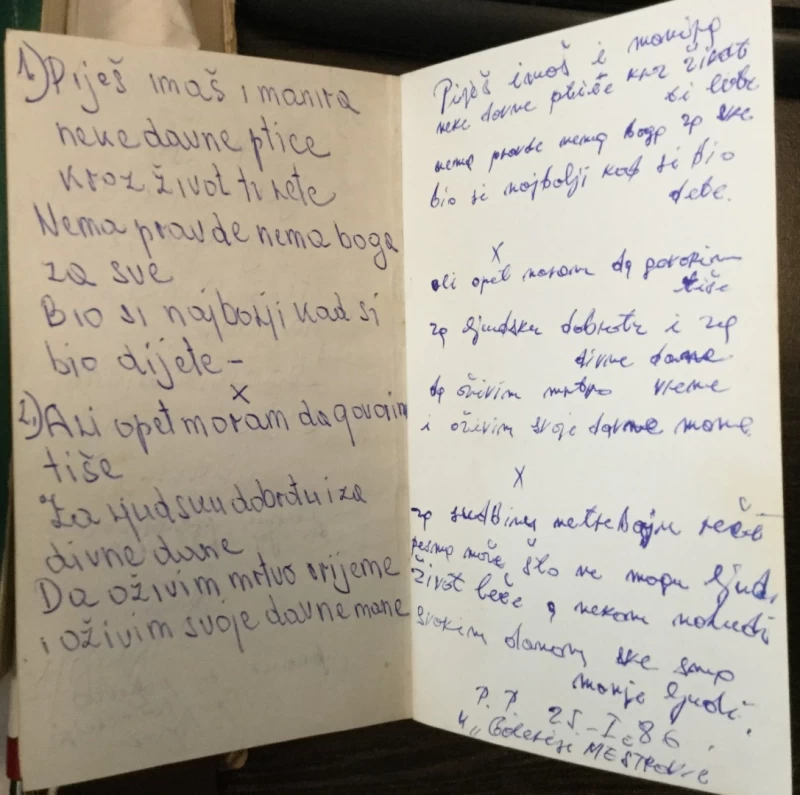 1.) Piješ imaš i manira
neke davne ptice
kroz život ti lete
Nema pravde nema boga
za sve
Bio si najbolji kad si
bio dijete –
X
2.) Ali opet moram da govorim
tiše
Za ljudsku dobrotu i za
divne dane
Da oživim mrtvo vrijeme
i oživim svoje davne mane
Piješ imaš i manira
neke davne ptiče kroz život
ti lete
nema pravde nema boga za sve
bio si najbolji kad si bio
dete.
X
ali opet moram da govorim
tiše
za ljudsku dobrotu i za
divne dane
da oživim mrtvo vreme
i oživim svoje davne mane
X
za sudbinu reči
pesma može što ne mogu ljudi
život beše a nekom
svakim danom sve smo
manje ljudi.
P.P. 25-I-86.
u „Galeriji MEŠTROVIĆ